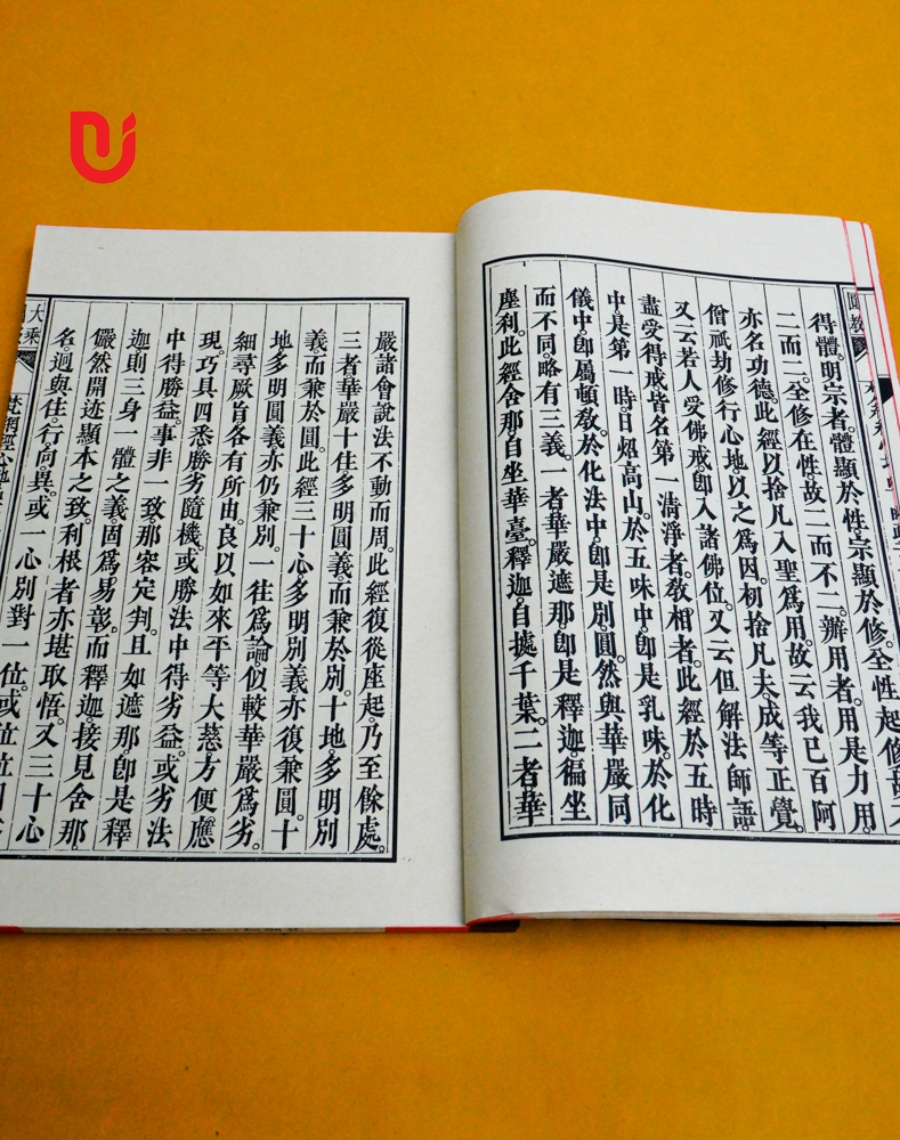 得體。明宗者。體顯於性。宗顯於修。全性起修。故
二而二。全修在性。故二而不二。辦用者。用是力用。
亦名功德。此經以捨凡入聖爲用。故云我已百阿
僧祇劫修行心地。以之爲因。初捨凡夫。成等正覺。
又云若人受佛戒。卽入諸佛位。又云但解法師語。
盡受得戒。皆名第一淸淨者。敎相者。此經於五時
中。是第一時。日炤高山。於五味中。卽是乳味。於化
儀中。卽屬頓敎。於化法中。卽是別圓。然與華嚴同
而不同。略有三義。一者華嚴遮那卽是釋迦。徧坐
塵刹。此經舍那。自坐華臺。釋迦。自據千葉。二者華
嚴諸會說法不動而周。此經復從座起。乃至餘處。
三者華嚴十住多明圓義。而兼於別。十地。多明別
義。而兼於圓。此經三十心。多明別義。亦復兼圓。十
地多明圓義。亦仍兼別。一往爲論。似較華嚴爲劣。
細尋厥旨。各有所由。良以如來平等大慈。方便應
現。巧具四悉。勝劣隨機。或勝法中得劣益。或劣法
中得勝益。事非一致。那容定判。且如遮那。卽是釋
迦。則三身一體之義。固爲易彰。而釋迦。接見舍那。
儼然開迹顯本之致。利根者亦堪取悟。又三十心
名。迥與住。行。向。異。或一心別對一位。或
大乘
梵網經心地